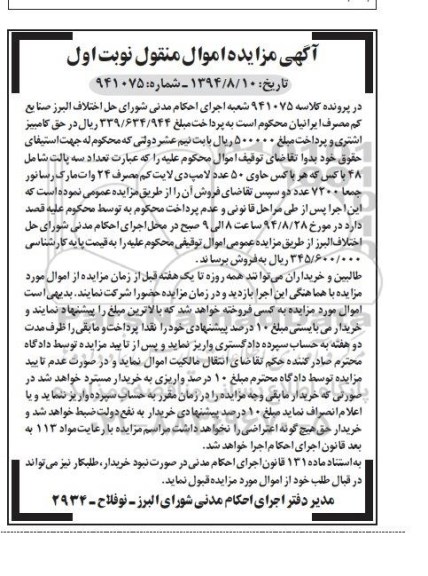 آگهی مزایده اموال منقول نوبت اول
تاریخ: ۱۳۹۴/۸/۱۰ ـ شماره: ۹۴۱۰۷۵
در پرونده کلاسه ۹۴۱۰۷۵ شعبه اجرای احکام مدنی شورای حل اختلاف البرز صنایع
کم مصرف ایرانیان محکوم است به پرداخت مبلغ ۳۳۹/۶۳۴/۹۴۴ ریال در حق کامبیز
اشتری و پرداخت مبلغ ۵۰۰۰۰۰ ریال بابت نیم عشر دولتی که محکوم له جهت استیفای
حقوق خود بدوا تقاضای توقیف اموال محکوم علیه را که عبارت تعداد سه پالت شامل
۴۸ باکس که هر باکس حاوی ۵۰ عدد لامپ دی لایت کم مصرف ۲۴ وات مارک رسانور
جمعا ۷۲۰۰ عدد و سپس تقاضای فروش آن را از طریق مزایده عمومی نموده است که
این اجرا پس از طی مراحل قانونی و عدم پرداخت محکوم به توسط محکوم علیه قصد
دارد در مورخ ۹۴/۸/۲۸ ساعت ۸ الی ۹ صبح در محل اجرای احکام مدنی شورای حل
اختلاف البرز از طریق مزایده عمومی اموال توقیفی محکوم علیه را به قیمت پایه کارشناسی
۳۴۵/۶۰۰/۰۰۰ ریال به فروش برساند.
طالبین و خریداران می توانند همه روزه تا یک هفته قبل از زمان مزایده از اموال مورد
مزایده با هماهنگی این اجرا بازدید و در زمان مزایده حضورا شرکت نمایند. بدیهی است
اموال مورد مزایده به کسی فروخته خواهد شد که بالاترین مبلغ را پیشنهاد نمایند و
خریدار می بایستی مبلغ ۱۰ درصد پیشنهادی خود را نقدا پرداخت و مابقی را ظرف مدت
دو هفته به حساب سپرده دادگستری واریز نماید و پس از تایید مزایده توسط دادگاه
محترم صادر کننده حکم تقاضای انتقال مالکیت اموال نماید و در صورت عدم تایید
مزایده توسط دادگاه محترم مبلغ ۱۰ درصد واریزی به خریدار مسترد خواهد شد در
صورتی که خریدار مابقی وجه مزایده را در زمان مقرر به حساب سپرده واریز ننماید و یا
اعلام انصراف نماید مبلغ ۱۰ درصد پیشنهادی خریدار به نفع دولت ضبط خواهد شد و
خریدار حق هیچ گونه اعتراضی را نخواهد داشت مراسم مزایده با رعایت مواد ۱۱۳ به
بعد قانون اجرای احکام اجرا خواهد شد.
به استناد ماده ۱۳۱ قانون اجرای احکام مدنی در صورت نبود خریدار، طلبکار نیز می تواند
در قبال طلب خود از اموال مورد مزایده قبول نماید.
مدیر دفتر اجرای احکام مدنی شورای البرز ـ نوفلاح ـ ۲۹۳۴